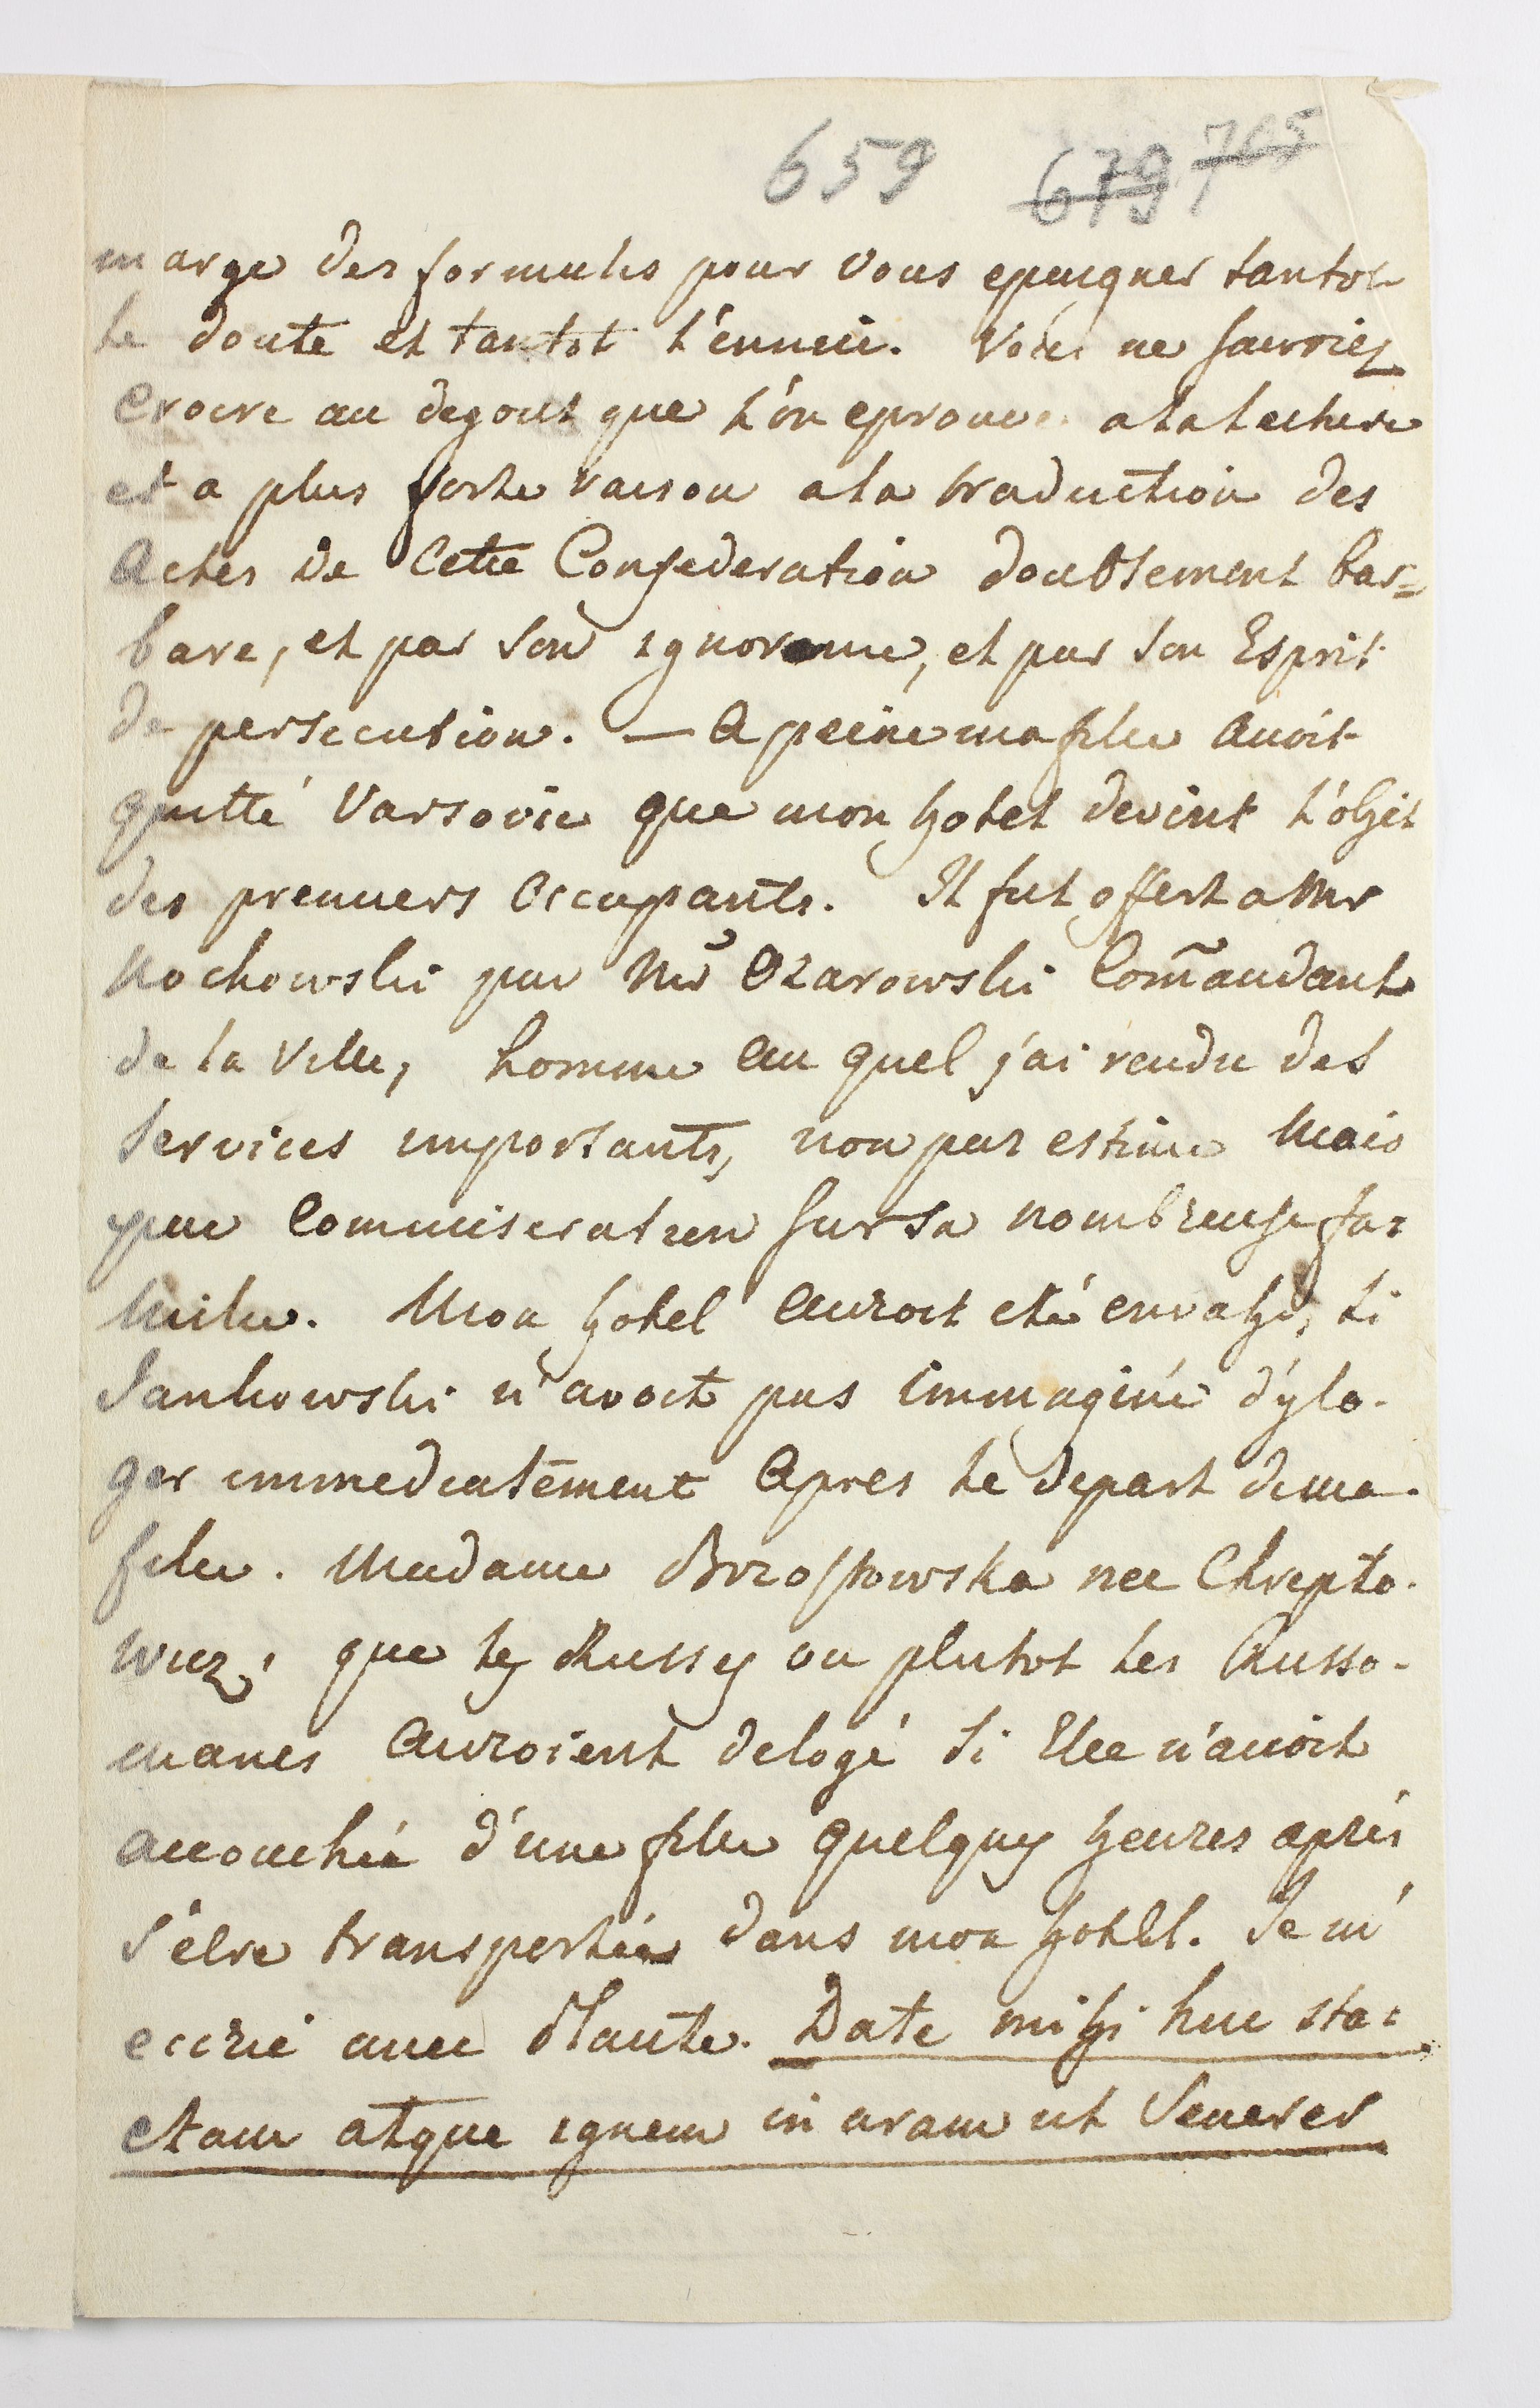 659 679 705
marge des formules pour vous epargner tantot
le doute et tantot l'ennui. Vous ne sauriez
croire au degout que l'on eprouve a la lecture
et a plus forte raison a la traduction des
Actes de Cette Confederation doublement bar=
bare, et par son ignorance, et par son Esprit
de persecution. — A peine ma fille avoit
quitté Varsovie que mon hotel devint l'objet
des premiers Occupants. Il fut offert a Mr
Kochowski par Mr Ozarowski Com̃andant
de la Ville, homme au quel j'ai rendu des
services importants, non par estime mais
par Commiseration sur sa nombreuse fa=
mille. Mon hotel auroit eté envahi, si
Jankowski n'avoit pas immaginé d'y lo-
ger immediatement Apres le depart de ma
fille. Madame Brzostowska nee Chrepto-
wicz, que les Russes ou plutot les Russo-
manes Auroient delogé si Elle n'avoit
accouchée d'une fille quelques heures aprés
s'être transportée dans mon hotel. Je m'
ecrié avec Plaute. Date mihi huc sta=
ctam atque ignem in aram ut Venerer